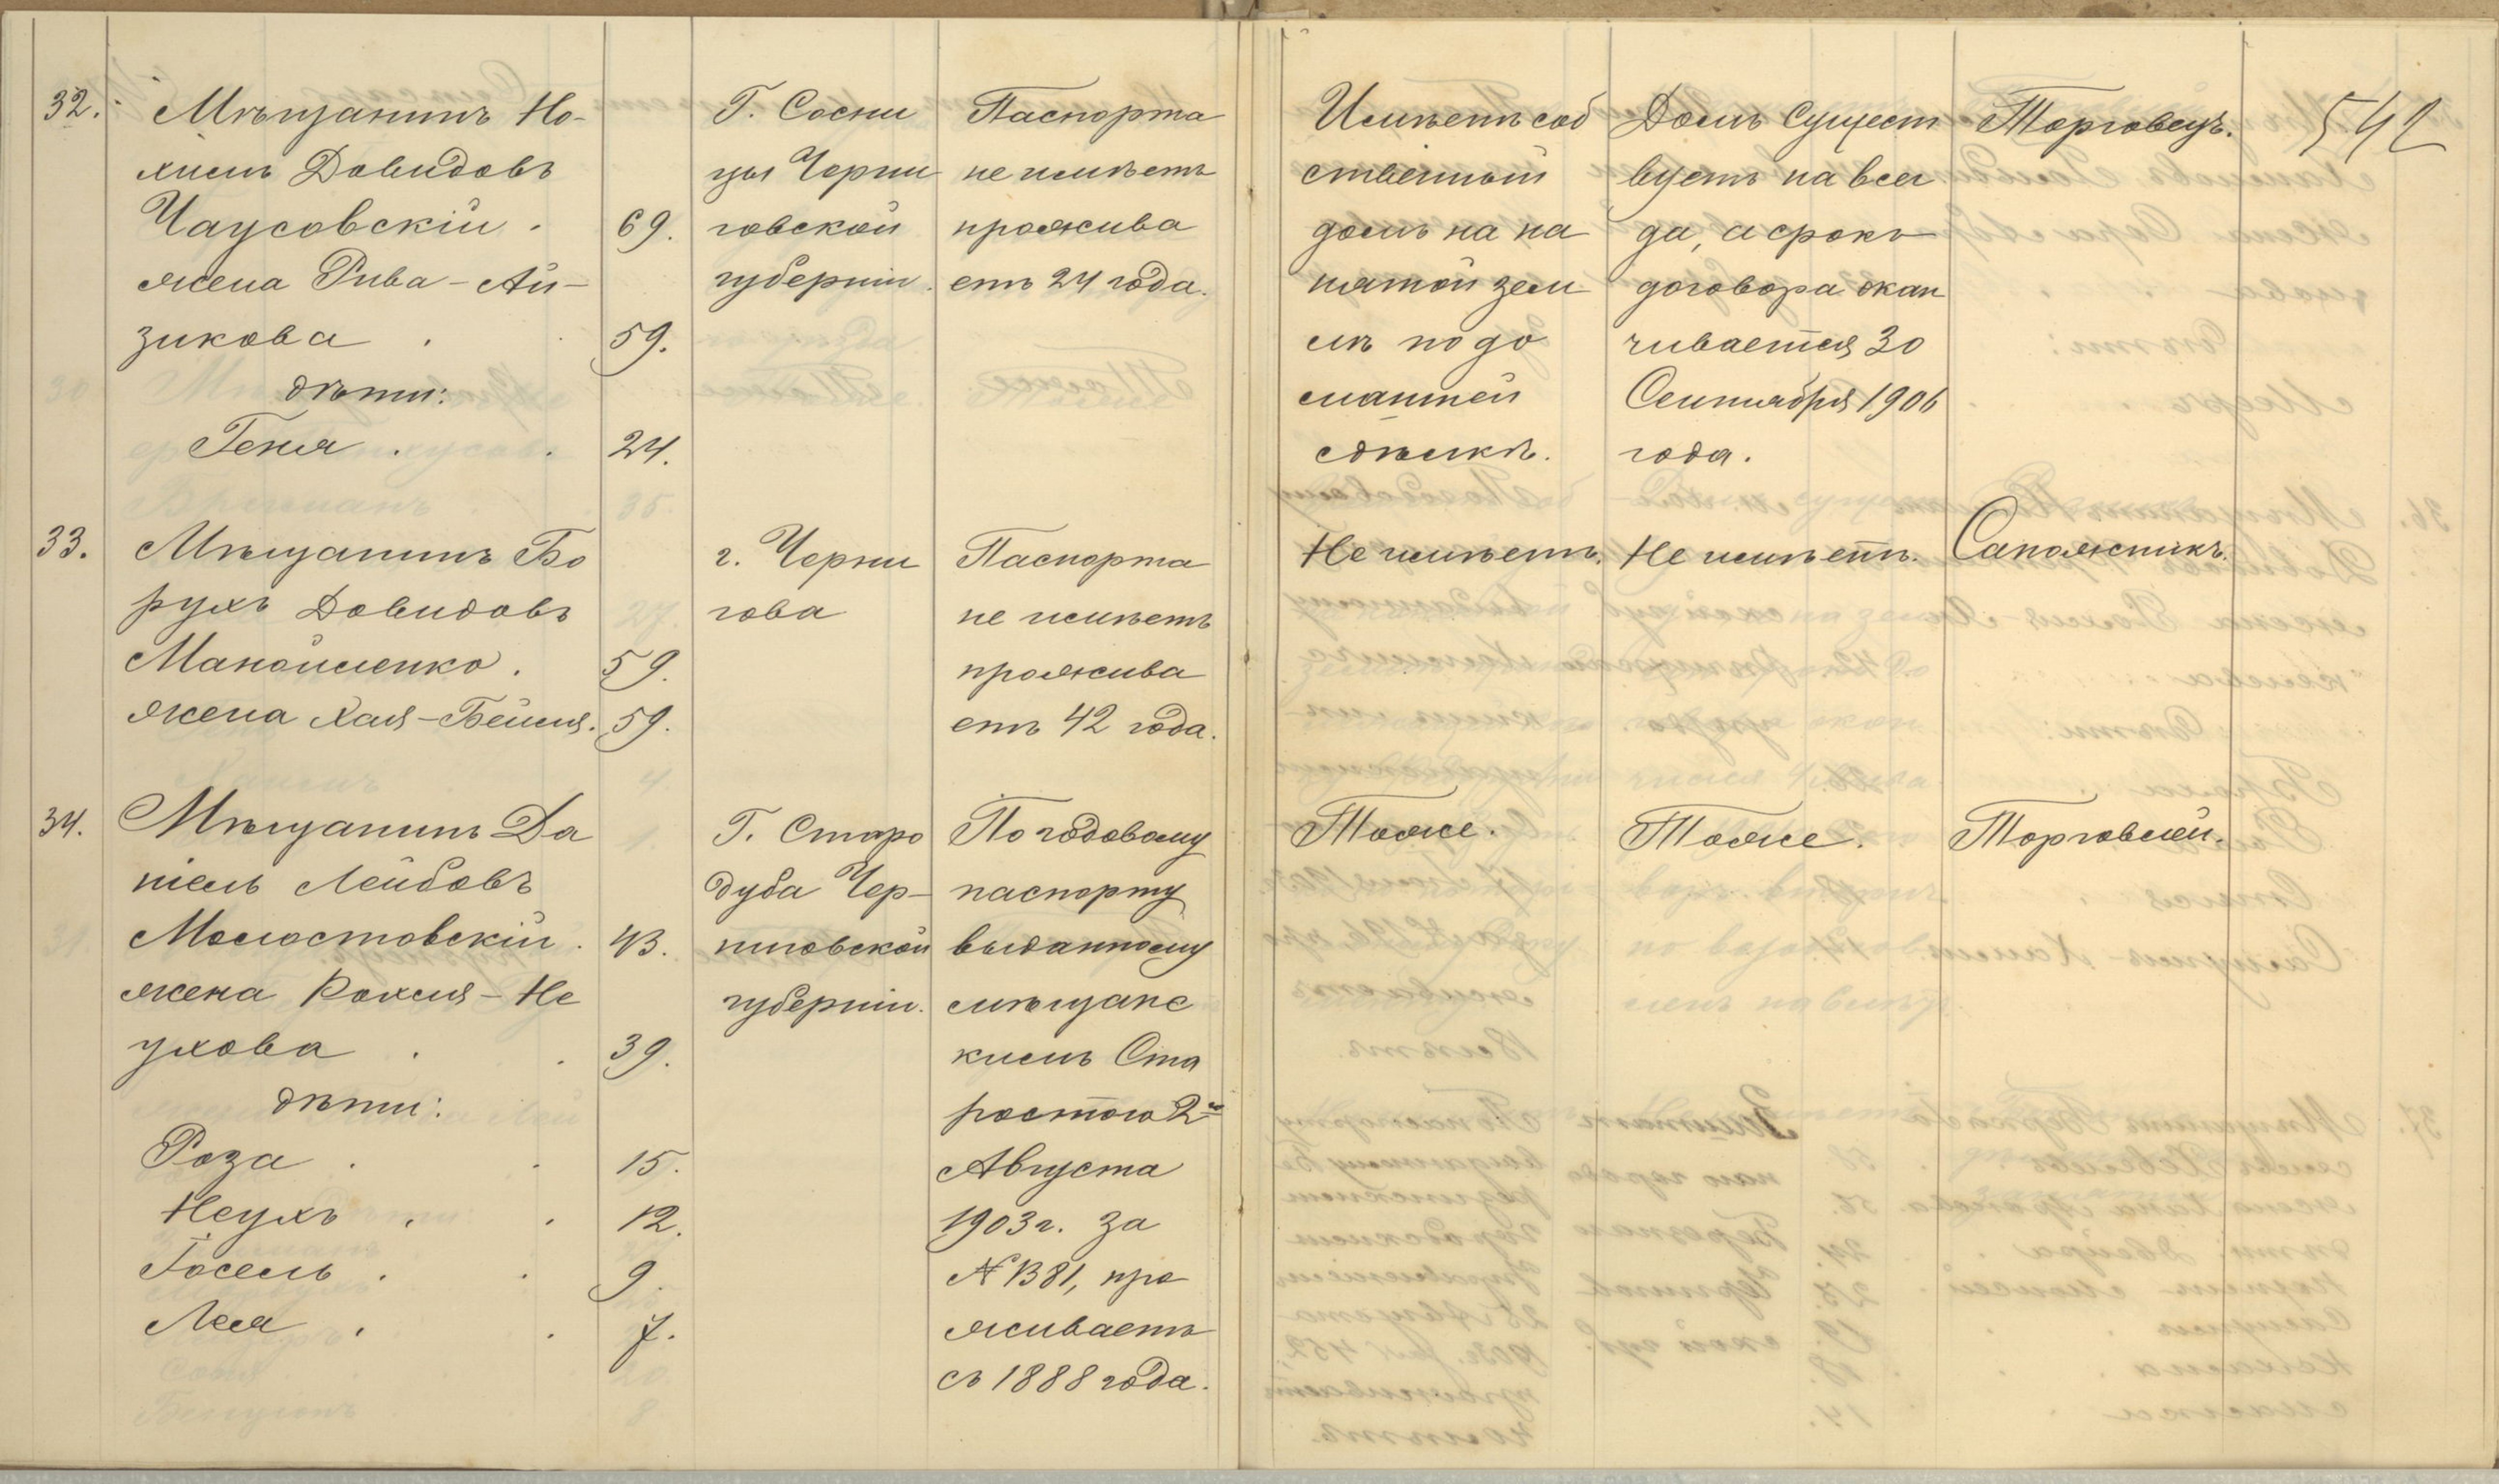 32. Мѣщанинъ Но-
химъ Довидовъ
Чаусовскій . 69.
жена Рива-Ай-
зикова . 59.
дѣти:
Геня . . 24.
Г. Сосни
цы Черни
говской
губерніи.
Паспорта
не имѣетъ
прожива
етъ 24 года.
Имѣетъ соб
ственный
домъ на на
нятой зем
лѣ по до
машней
сдѣлкѣ.
Домъ сущест
вуетъ на всег
да, а срокъ
договора окан
чивается 30
Сентября 1906
года.
Торговецъ.
542
33. Мѣщанинъ Бо
рухъ Довидовъ
Манойленко . 59.
жена Хая-Бейля. 59.
г. Черни
гова
Паспорта
не имѣетъ
прожива
етъ 42 года.
Не имѣетъ.
Не имѣетъ.
Сапожникъ.
34. Мѣщанинъ Да
ніель Лейбовъ
Молостовскій . 43.
жена Рохля-Не
ухова . . 39.
дѣти:
Роза . . 15.
Неухъ . . 12.
Іосель . . 9.
Лея . . 7.
Г. Старо
дуба Чер-
ниговской
губерніи.
По годовому
паспорту
выданному
мѣщанс
кимъ Ста
ростою 2го
Августа
1903 г. за
№ 1381, про
живаетъ
съ 1888 года.
Тоже.
Тоже.
Торговлей.